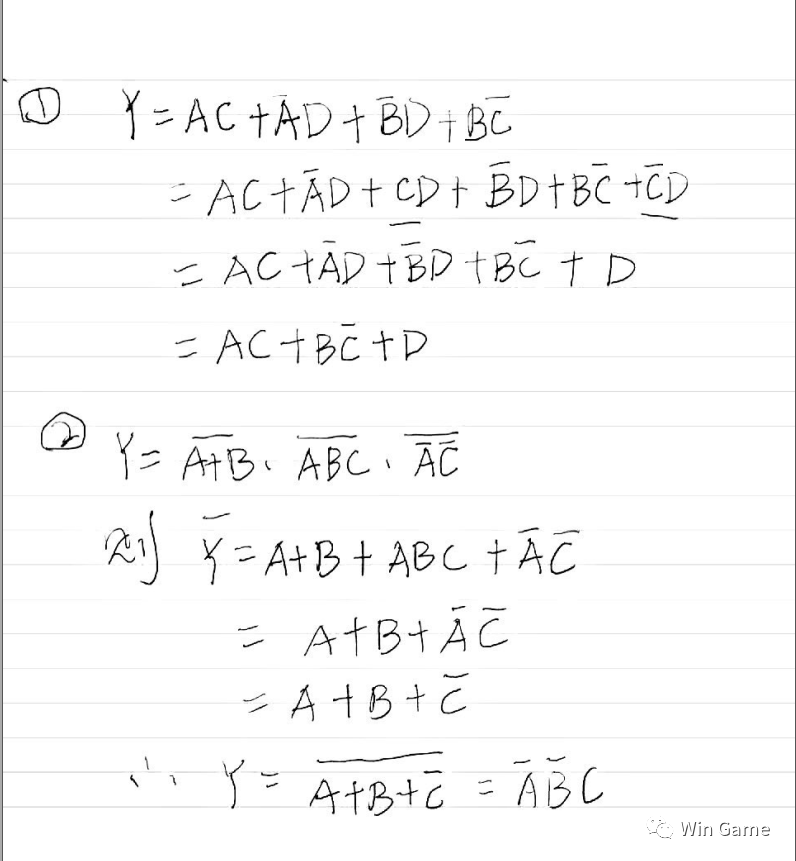 ① Y = AC + A̅D + B̅D + BC̅
= AC + A̅D + CD + B̅D + BC̅ + C̅D
= AC + A̅D + B̅D + BC̅ + D
= AC + BC̅ + D
② Y = \overline{A+B} · \overline{ABC} · \overline{A̅C̅}
则 Y̅ = A+B + ABC + A̅C̅
= A+B+A̅C̅
= A+B+C̅
∴ Y = \overline{A+B+C̅} = A̅B̅C
Win Game